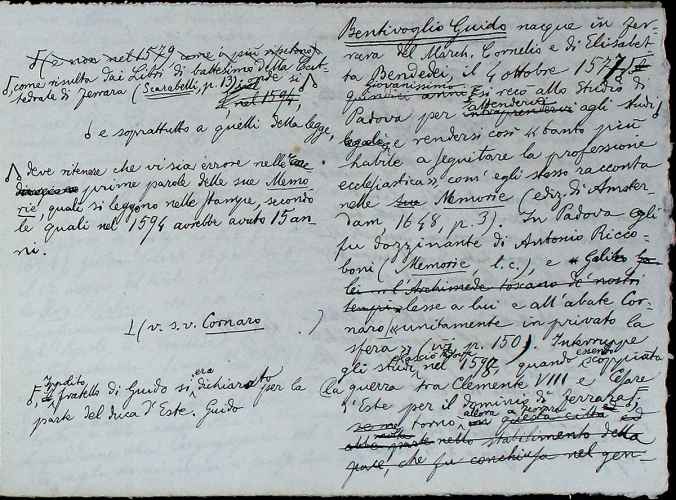 (e non nel 1579 come i più ripetono)
come risulta dai Libri di battesimo della Cat-
tedrale di Ferrara (Scarabelli, p. 13); onde si
nel 1594,
e soprattutto a quelli della legge,
deve ritenere che vi sia errore nelle
prime parole delle sue Memo-
rie, quali si leggono nelle stampe, secondo
le quali nel 1594 avrebbe avuto 15 an-
ni.
(v. s. v. Cornaro )
Ippolito era
fratello di Guido si dichiarato per la
parte del duca d'Este. Guido
Bentivoglio Guido nacque in Fer-
rara del March. Cornelio e di Elisabet-
ta Bendedei, il 4 ottobre 1577
giovanissimo
quindici anni si recò allo Studio di
attendervi
Padova per intraprendervi agli studi
legali, e rendersi così « tanto più
habile a seguitare la professione
ecclesiastica », com' egli stesso racconta
nelle sue Memorie (ediz. di Amster-
dam, 1648, p. 3). In Padova egli
fu dozzinante di Antonio Ricco-
boni (Memorie, l. c.), e « Galileo Ga-
lei « l'Archimede toscano de' nostri
tempi » lesse a lui e all'abate Cor-
naro « unitamente in privato la
sfera » (ivi p. 150). Interruppe
essendo
gli studi nel 1597, quando scoppiata
la guerra tra Clemente VIII e Cesare
d'Este per il dominio di Ferrara
allora a Ferrara
tornò questa città
molta
ebbe parte nello stabilimento della
pace, che fu conchiusa nel gen-